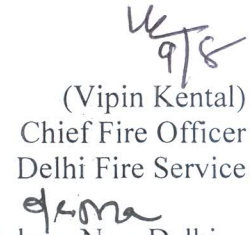 9/8
(Vipin Kental)
Chief Fire Officer
Delhi Fire Service